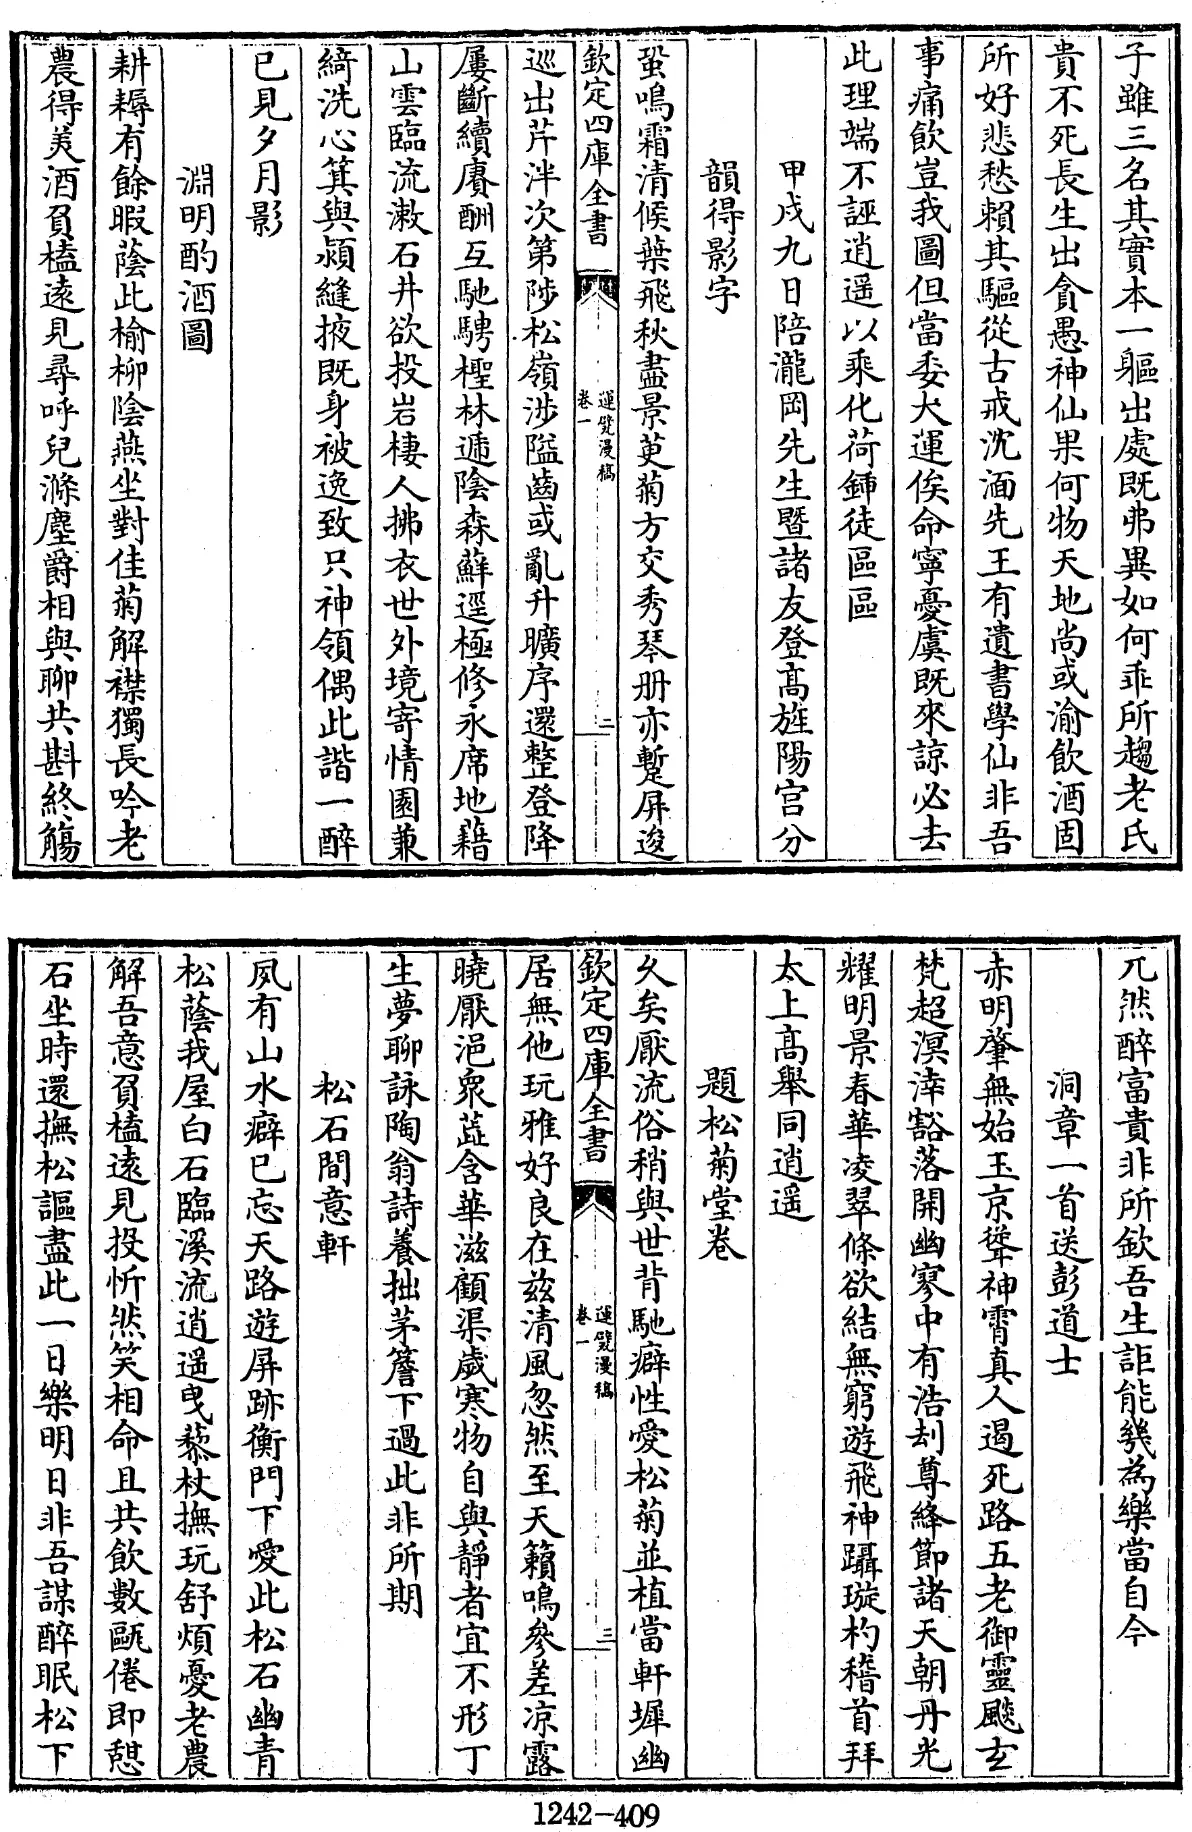 子雖三名其實本一軀出處既弗異如何乖所趨老氏
貴不死長生出貪愚神仙果何物天地尚或渝飲酒固
所好悲愁賴其驅從古戒沈湎先王有遺書學仙非吾
事痛飲豈我圖但當委大運俟命寧憂虞既來諒必去
此理端不誣逍遥以乘化荷鍤徒區區
甲戌九日陪瀧岡先生暨諸友登髙旌陽宫分
韻得影字
蛩鳴霜清候葉飛秋盡景萸菊方交秀琴册亦蹔屏逡
欽定四庫全書
運甓漫稿
卷一
二
巡出芹泮次第陟松嶺涉隘齒或亂升曠序還整登降
屢斷續賡酬互馳騁檉林遞陰森蘚逕極修永席地藉
山雲臨流漱石井欲投岩棲人拂衣世外境寄情園兼
綺洗心箕與潁縫掖既身被逸致只神領偶此諧一醉
已見夕月影
淵明酌酒圖
耕耨有餘暇蔭此榆柳陰燕坐對佳菊解襟獨長吟老
農得美酒負榼逺見尋呼兒滌塵爵相與聊共斟終觴
兀然醉富貴非所欽吾生詎能幾為樂當自今
洞章一首送彭道士
赤明肇無始玉京聳神霄真人遏死路五老御靈飈玄
梵超溟涬豁落開幽寥中有浩刦尊絳節諸天朝丹光
耀明景春華凌翠條欲結無窮遊飛神躡璇杓稽首拜
太上髙舉同逍遥
題松菊堂卷
久矣厭流俗稍與世背馳癖性愛松菊並植當軒墀幽
欽定四庫全書
運甓漫稿
卷一
三
居無他玩雅好良在兹清風忽然至天籟鳴參差凉露
曉厭浥衆蕋含華滋顧渠歲寒物自與靜者宜不形丁
生夢聊詠陶翁詩養拙茅簷下過此非所期
松石間意軒
夙有山水癖已忘天路遊屏跡衡門下愛此松石幽青
松蔭我屋白石臨溪流逍遥曳藜杖撫玩舒煩憂老農
解吾意負榼逺見投忻然笑相命且共飲數甌倦即憇
石坐時還撫松謳盡此一日樂明日非吾謀醉眠松下
1242-409